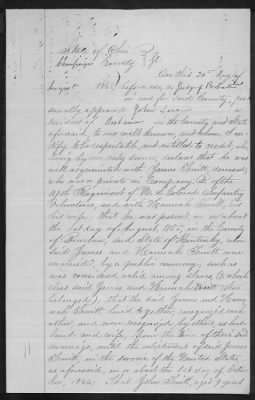 State of Ohio
Champaign County } SS.
On this 20th day of
August 1869, before me, a Judge of Probate
in and for said County, per-
sonally appeared John
resident of in the County and State
aforesaid, to me well known, and whom I cer-
tify to be respectable, and entitled to credit, who
being by me duly sworn, declares that he was
well acquainted with James deceased,
who was a private in Company of the
Regiment of U. S. Colored Infantry
Volunteers, and with Hannah
his wife; that he was present, on or about
the 1st day of August, 1855, in the County
of Bourbon, and State of Kentucky, when
said James and Hannah were
married, by a public ceremony, such as
was considered valid among slaves (to which
class said James and Hannah then
belonged); that the said James and Han-
nah lived together, recognized each
other, and were recognized by others as hus-
band and wife, from the time of their said
marriage, until the enlistment of said James
in the service of the United States,
as aforesaid, on or about the 1st day of Octo-
ber, 1864. That John aged 9 years